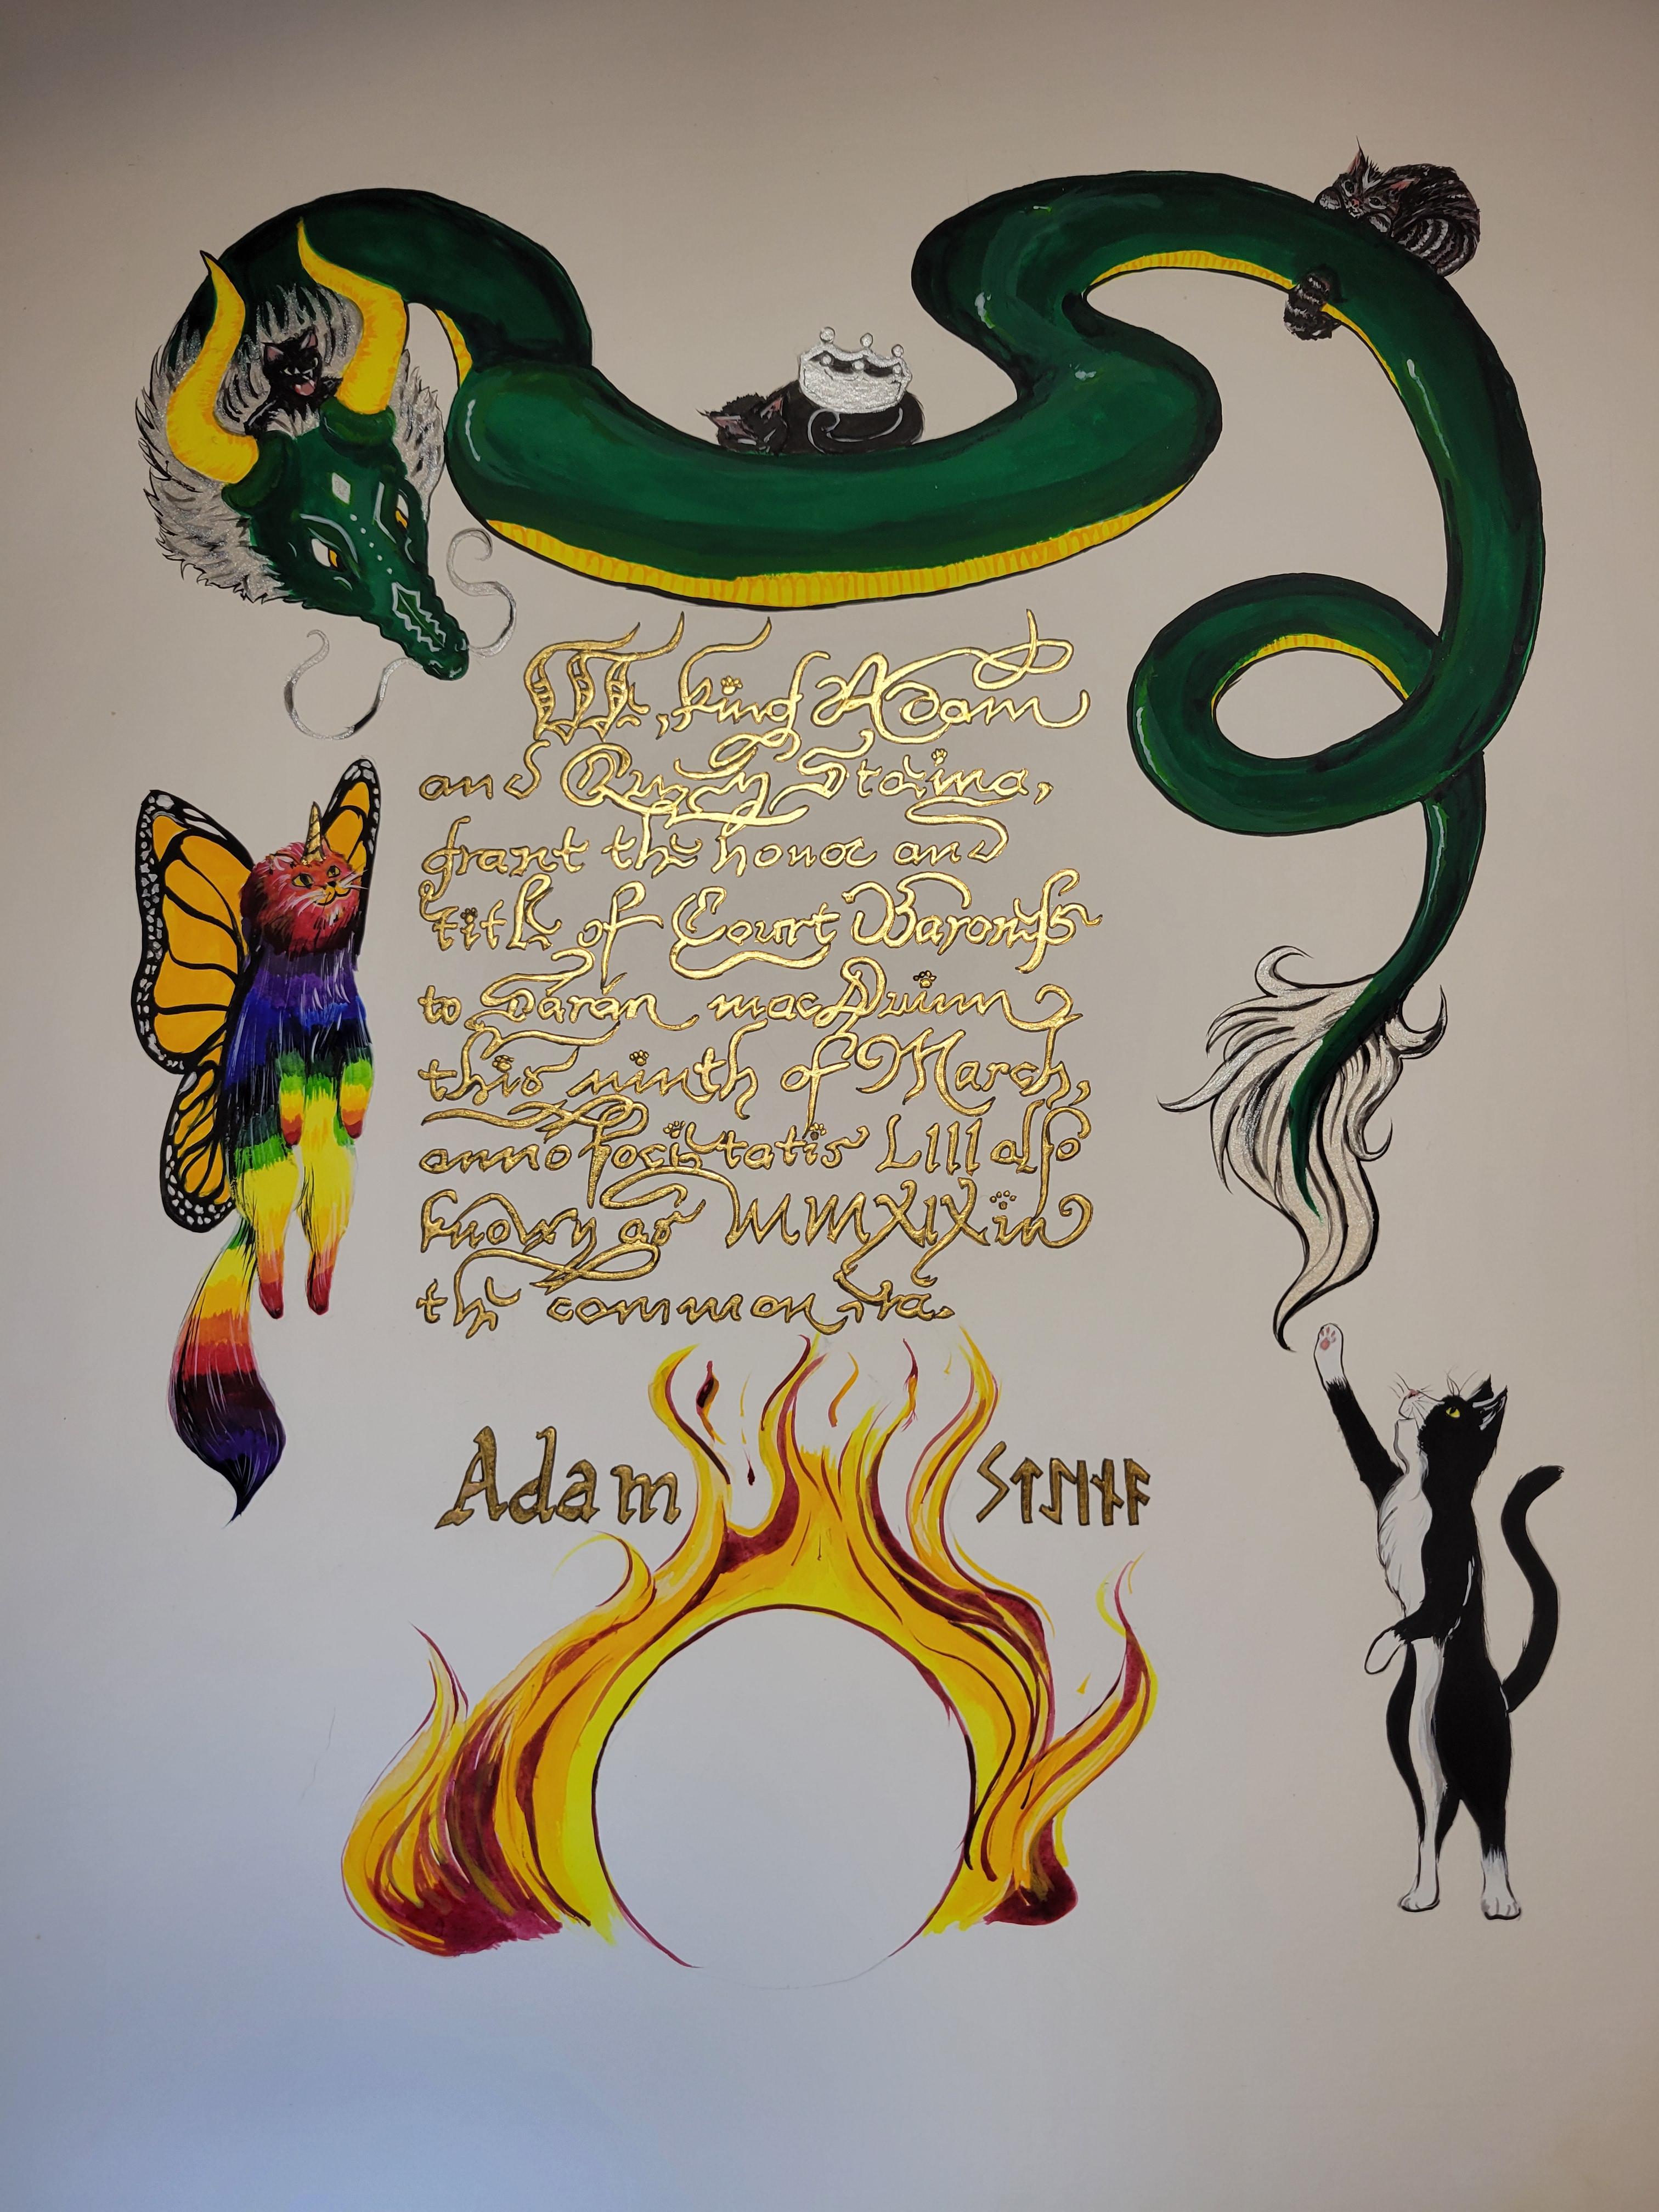 We, king Adam
and Queen
grant the honor and
title of Court Baroneſs
to
this ninth of March,
anno ſocietatis LIII alſo
known as MMXIX in
the common era.
Adam ᛊᛏᛇᛁᚾᚨ